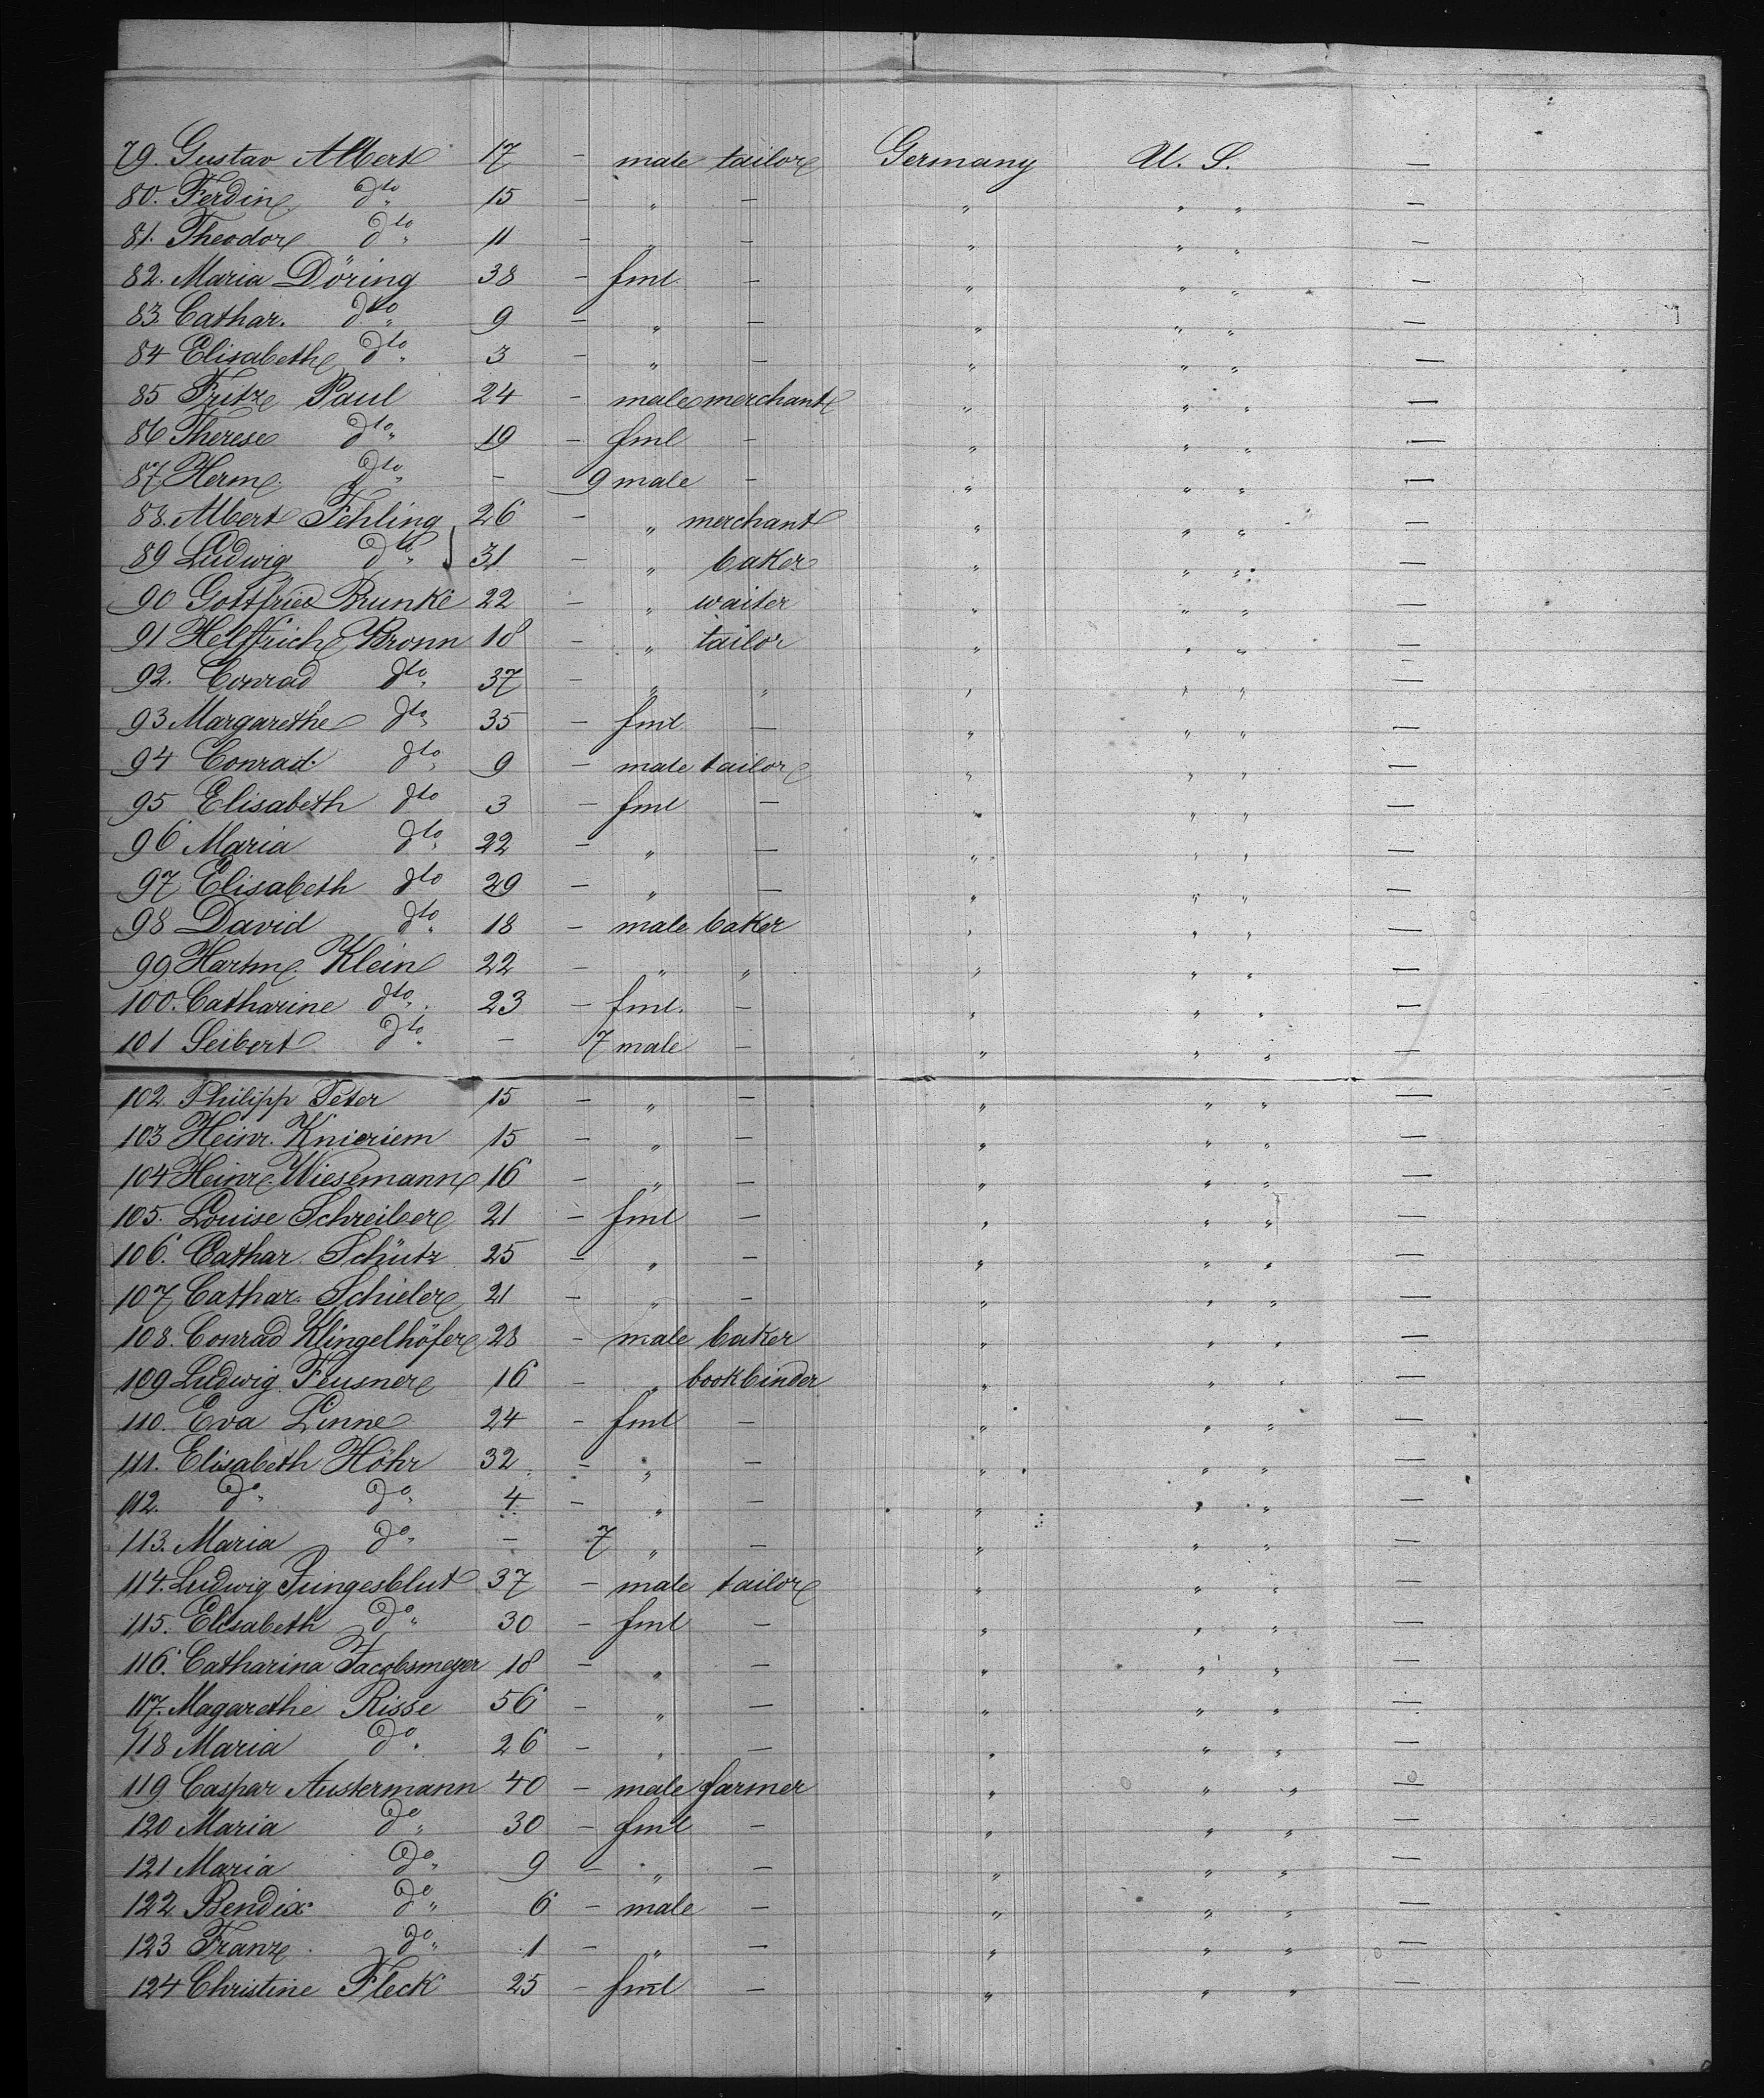 79. Gustav Albert 17 – male tailor Germany U. S. –
80. Ferdin. dto 15 – " – " " " –
81. Theodor dto 11 – " – " " " –
82. Maria Döring 38 – fml. – " " " –
83. Cathar. dto 9 – " – " " " –
84 Elisabeth dto 3 – " – " " " –
85 Fritz Paul 24 – male merchant " " " –
86 Therese dto 19 – fml – " " " –
87 Herm. dto – 9 male – " " " –
88. Albert Fehling 26 – " merchant " " " –
89 Ludwig dto 31 – " baker " " " –
90 Gottfried Brunke 22 – " waiter " " " –
91 Helffrich Bronn 18 – " tailor " " " –
92. Conrad dto 37 – " " " " " –
93 Margarethe dto 35 – fml. – " " " –
94 Conrad dto 9 – male tailor " " " –
95 Elisabeth dto 3 – fml – " " " –
96 Maria dto 22 – " – " " " –
97 Elisabeth dto 29 – " – " " " –
98 David dto 18 – male baker " " " –
99 Hartm. Klein 22 – " " " " " –
100. Catharine dto 23 – fml. – " " " –
101 Seibert dto – 7 male – " " " –
102. Philipp Peter 15 – " – " " " –
103 Heinr. Knieriem 15 – " – " " " –
104 Heinr. Wiesemann 16 – " – " " " –
105. Louise Schreiber 21 – fml – " " " –
106. Cathar. Schütz 25 – " – " " " –
107 Cathar. Schieler 21 – " – " " " –
108. Conrad Klingelhöfer 28 – male baker " " " –
109 Ludwig Feusner 16 – " bookbinder " " " –
110. Eva Linne 24 – fml – " " " –
111. Elisabeth Höhr 32 – " – " " " –
112. do do 4 – " – " " " –
113. Maria do – 7 " – " " " –
114. Ludwig Jungesblut 37 – male tailor " " " –
115. Elisabeth do 30 – fml – " " " –
116. Catharina Jacobsmeyer 18 – " – " " " –
117. Magarethe Risse 56 – " – " " " –
118 Maria do 26 – " – " " " –
119 Caspar Austermann 40 – male farmer " " " –
120 Maria do 30 – fml – " " " –
121 Maria do 9 – " – " " " –
122 Bendix do 6 – male – " " " –
123 Franz do 1 – " – " " " –
124 Christine Fleck 25 – fml – " " " –